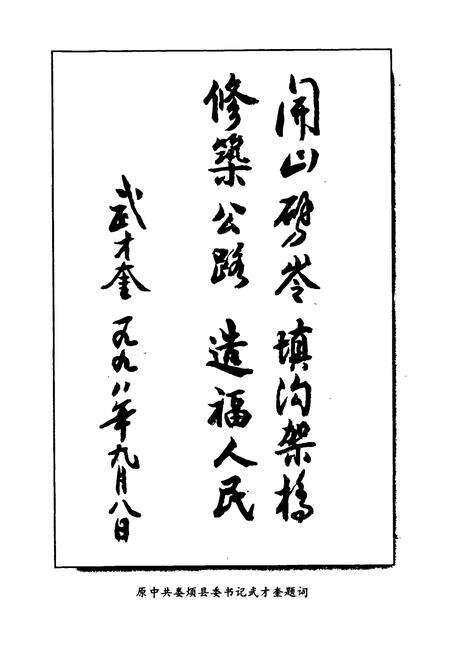 開山劈岺 填沟架橋
修築公路 造福人民
武才奎 一九九八年九月八日
原中共娄烦县委书记武才奎题词